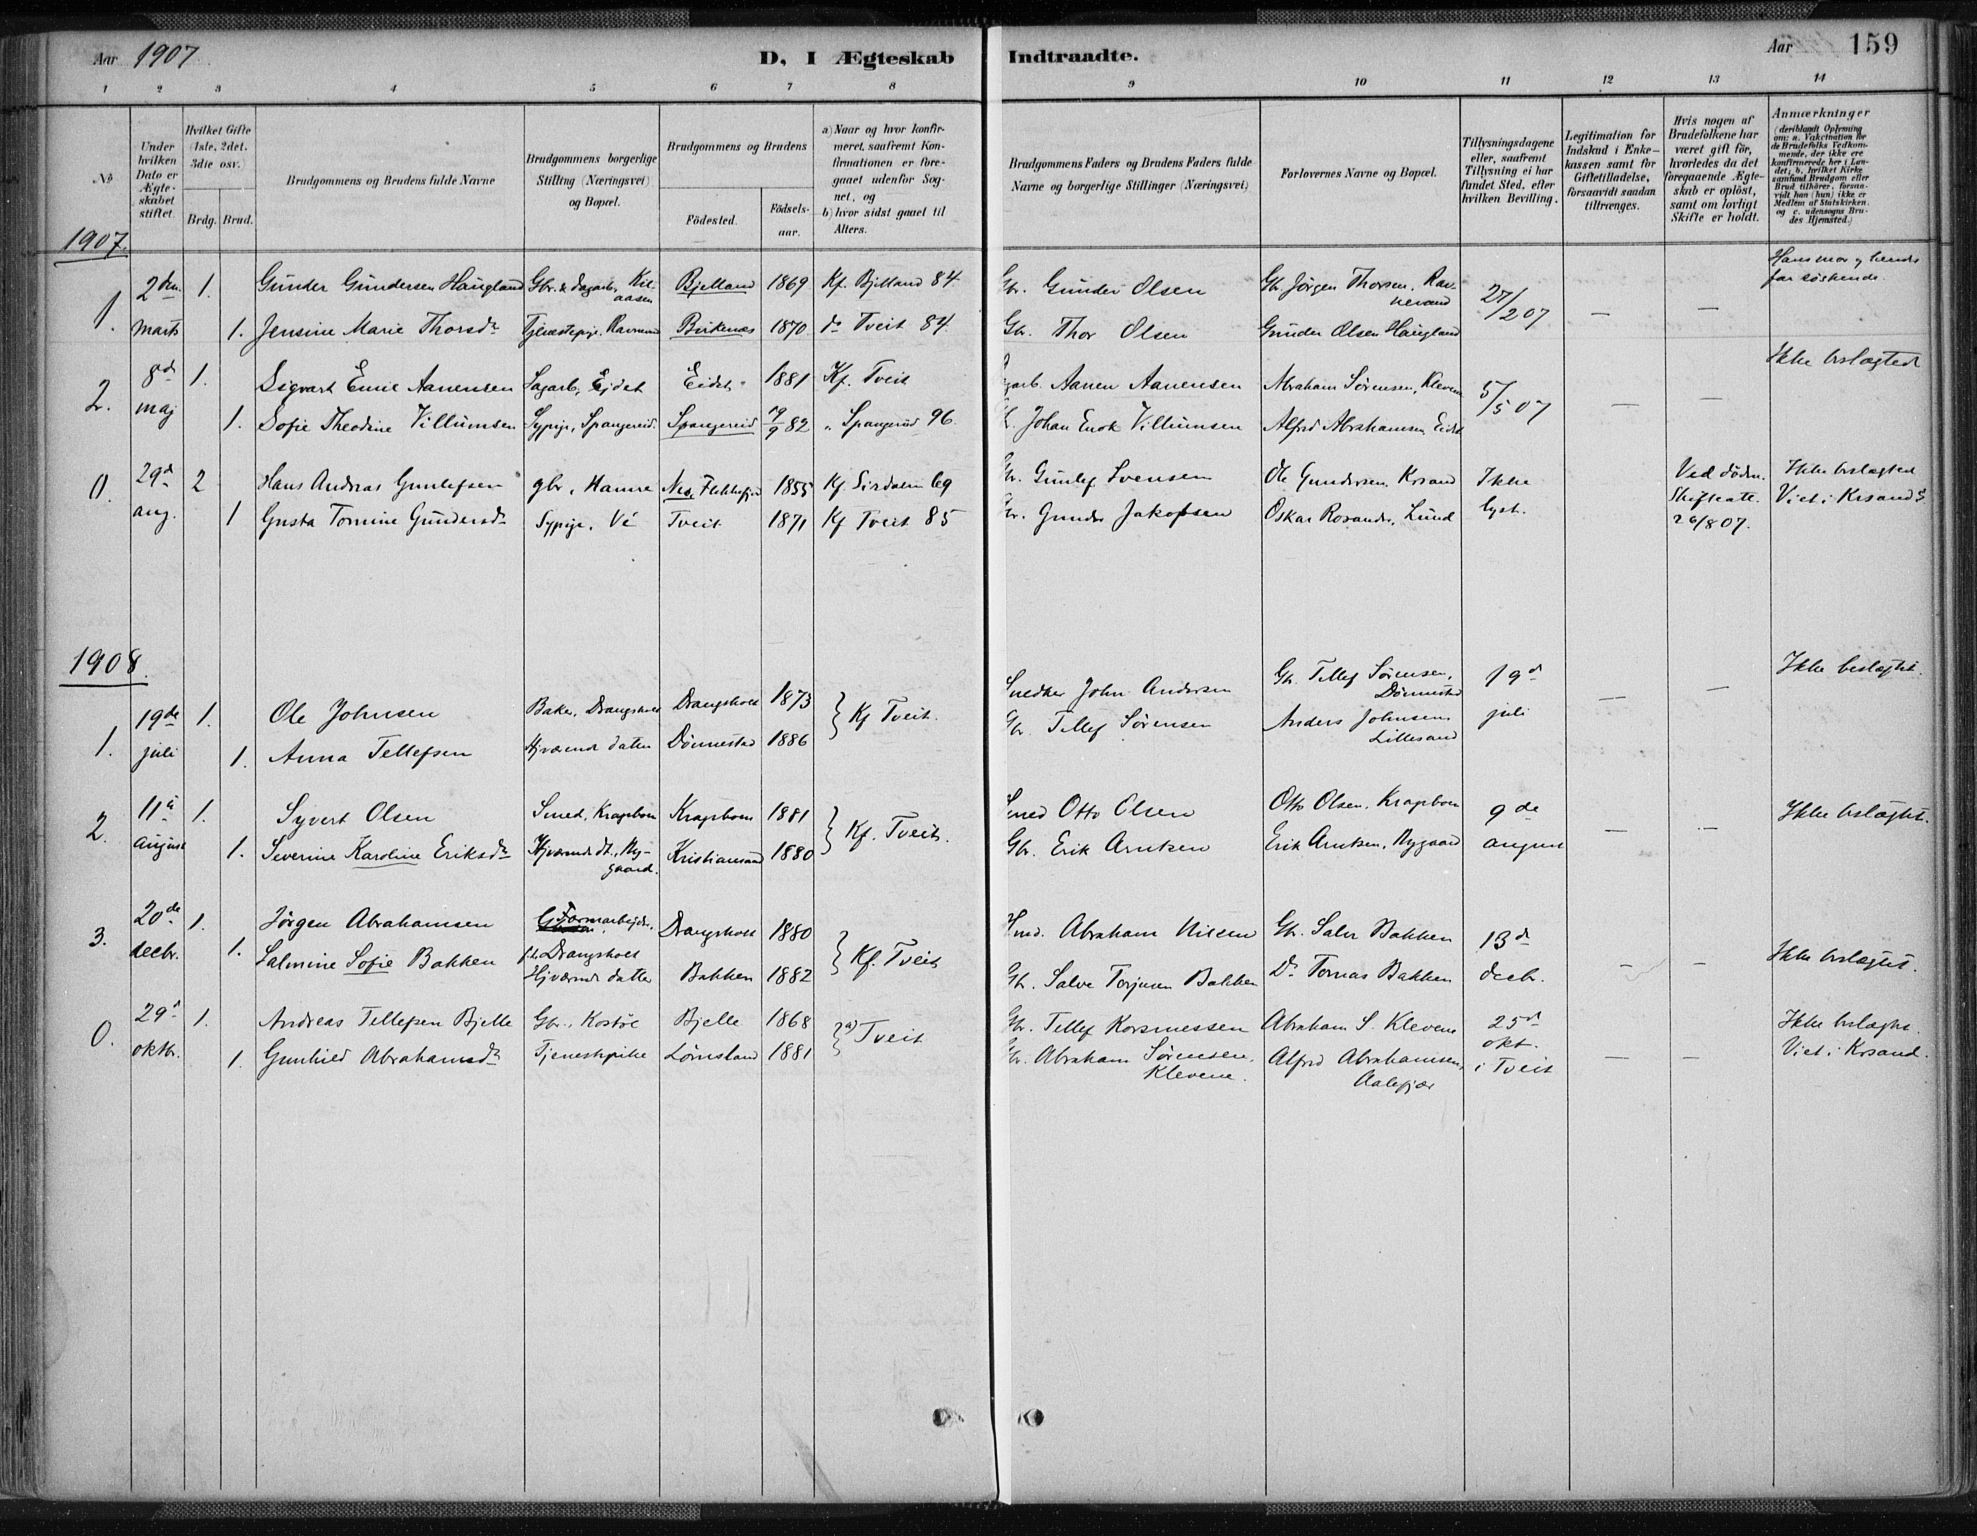 Aar 1907
D, I Ægteskab Indtraadte.
Aar 159
1 2 3 4 5 6 7 8 9 10 11 12 13 14
No
Under hvilken Dato er Ægteskabet stiftet.
Hvilket Gifte (1ste, 2det, 3die osv.)
Brdg. Brud.
Brudgommens og Brudens fulde Navne
Brudgommens borgerlige Stilling (Næringsvei) og Bopæl.
Brudgommens og Brudens
Födested.
Födsels-aar.
a) Naar og hvor konfirmeret, saafremt Konfirmationen er foregaaet udenfor Sognet, og
b) hvor sidst gaaet til Alters.
Brudgommens Faders og Brudens Faders fulde Navne og borgerlige Stillinger (Næringsvei)
Forlovernes Navne og Bopæl.
Tillysningsdagene eller, saafremt Tillysning ei har fundet Sted, efter hvilken Bevilling.
Legitimation for Indskud i Enkekassen samt for Giftetilladelse, forsaavidt saadan tiltrænges.
Hvis nogen af Brudefolkene har været gift för, hvorledes da det foregaaende Ægteskab er oplöst, samt om lovligt Skifte er holdt.
Anmærkninger
(deriblandt Oplysning om: a. Vakcination for de Brudefolks Vedkommende, der ikke ere konfirmerede her i Landet; b. hvilket Kirkesamfund Brudgom eller Brud tilhörer, forsaavidt han (hun) ikke er Medlem af Statskirken, og c. udensogns Brudes Hjemsted.)
1907.
1. 2den 1. Gunder Gundersen Haugland Gbr. & dagarb, Bjelland 1869 Kf. Bjelland 84 Gbr. Gunder Olsen Gbr Jörgen Thorsen, Ravnevand 27/2 07 — Hans mor og hends far söskende
marts 1. Jensine Marie Thorsdr Tjenestepige, Birkenæs 1870 do Tveit 84 Gbr. Thor Olsen Gunder Olsen Haugland —
2. 8de 1. Sigvart Emil Aanensen Sagarb, Ejdet Eidet 1881 Kf. Tveit Aanen Aanensen Abraham Sørensen, Kleven 5/5 07 — — Ikke beslægtet
maj 1. Sofie Theodine Villumsen Sypige, Spangereid. Spangereid 19/9 82 " Spangereid 96. Johan Enok Villumsen Alfred Abrahamsen Eidet
0. 29de 2 Hans Andreas Gunlefsen gbr, Hamre Nes, Flekkefjord 1855 Kf. Sirdalen 69 Gbr. Gunlef Svensen Ole Gundersen, Krsand Ikke lyst. Ved døden. Skifteatt. 26/8 07. Ikke beslægtet Viet i Krsand S
aug. 1 Gusta Tomine Gundersdr Sypige, Vé Tveit 1871 Kf Tveit 85 Gbr. Gunder Jakobsen Oskar Rosander, Lund
1908.
1. 19de 1. Ole Johnsen Baker, Drangsholt Drangsholt 1873 Kf Tveit. Snedker John Andersen Gbr. Tellef Sørensen, Dönnestad 19de — — Ikke beslægtet.
juli 1. Anna Tellefsen Hjværende datter Dönnestad 1886 Gbr. Tellef Sørensen Anders Johnsen Lillesand juli
2. 11te 1. Syvert Olsen Smed, Kragebom Kragebom 1881 Kf. Tveit. Smed Otto Olsen Otto Olsen, Kragebom 9de — — Ikke beslægtet.
august 1. Severine Karoline Eriksdr Hjværende dt, Nygaard. Kristiansand 1880 Gbr. Erik Arntsen Erik Arntsen, Nygaard august
3. 20de 1. Jörgen Abrahamsen Drangsholt 1880 Kf. Tveit Smed. Abraham Nilsen Gbr. Salve Bakken 13de — — Ikke beslægtet.
decbr. 1. Salmine Sofie Bakken Drangsholt Hjværende datter Bakken 1882 Gbr. Salve Torjusen Bakken Do Tomas Bakken decb.
0. 29de 1. Andreas Tellefsen Bjelle Gbr., Kostöl Bjelle 1868 a) Tveit Gbr. Tellef Korsmessen Abraham S. Klevene 25de okt. i Tveit — — Ikke beslægtet. Viet i Krsand.
oktbr. 1. Gunhild Abrahamsdr Tjenestepike 1881 Gbr. Abraham Sørensen, Klevene. Alfred Abrahamsen, Aalefjær